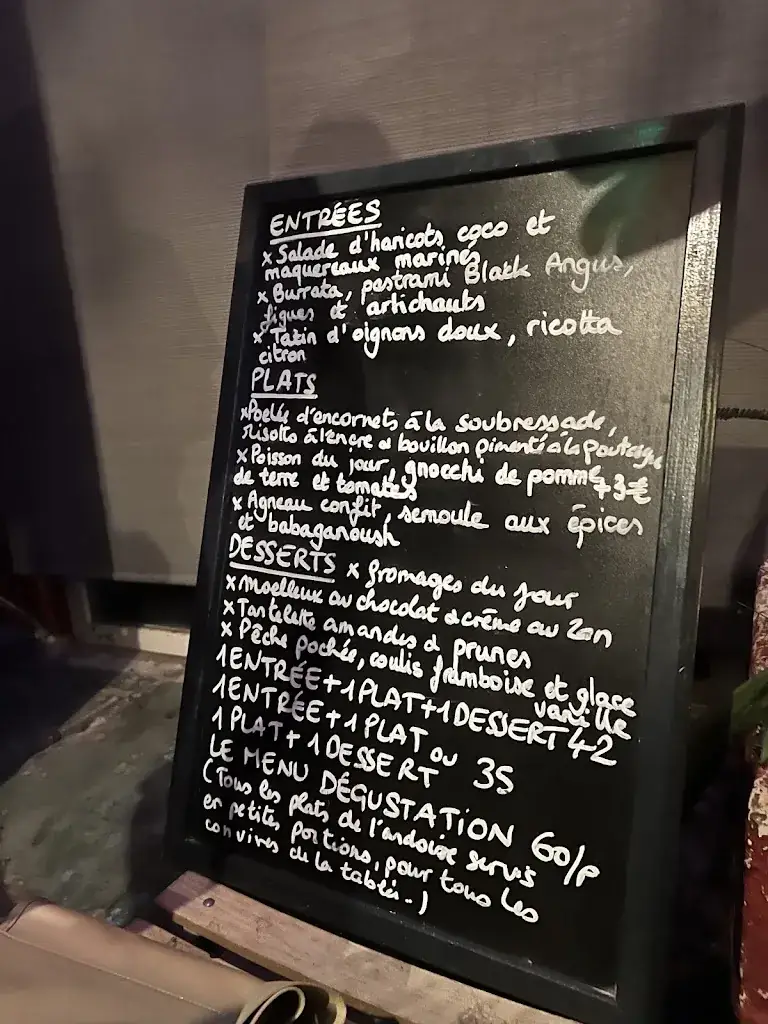 ENTRÉES
x Salade d'haricots coco et
maquereaux marinés
x Burrata, pastrami Black Angus,
figues et artichauts
x Tatin d'oignons doux, ricotta
citron
PLATS
x Poêlée d'encornets à la soubressade,
risotto à l'encre & bouillon pimenté à la poutargue
x Poisson du jour, gnocchi de pomme +3€
de terre et tomates
x Agneau confit, semoule aux épices
et babaganoush
DESSERTS x fromages du jour
x Moelleux au chocolat & crème au
x Tartelette amandes & prunes
x Pêche pochée, coulis framboise et glace
vanille
1 ENTRÉE + 1 PLAT + 1 DESSERT 42
1 ENTRÉE + 1 PLAT ou
1 PLAT + 1 DESSERT 35
LE MENU DÉGUSTATION 60/p
(Tous les plats de l'ardoise servis
en petites portions, pour tous les
convives de la tablée.)